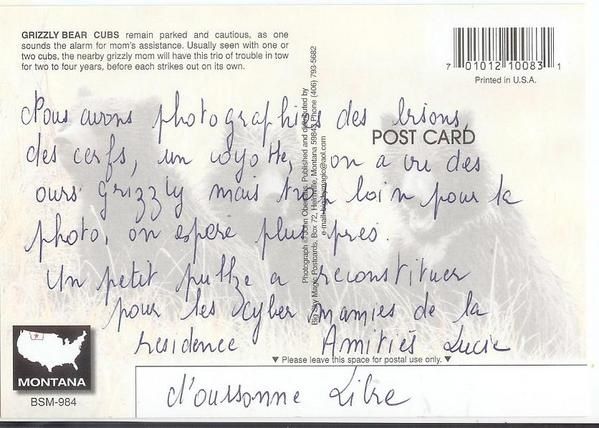 GRIZZLY BEAR CUBS remain parked and cautious, as one
sounds the alarm for mom's assistance. Usually seen with one or
two cubs, the nearby grizzly mom will have this trio of trouble in tow
for two to four years, before each strikes out on its own.
7 01012 10083 1
Printed in U.S.A.
POST CARD
Nous avons photographiés des bisons,
des cerfs, un coyotte, on a vu des
ours grizzly mais trop loin pour la
photo, on espère plus près.
Un petit puzzle a reconstituer
pour les cyber mamies de la
résidence Amitiés Lucie
d'oussonne Libre
Photograph © John Oberheu. Published and distributed by
Big Sky Magic Postcards, Box 72, Helmville, Montana 59843 Phone (406) 793-5682
▼ Please leave this space for postal use only. ▼
MONTANA
BSM-984